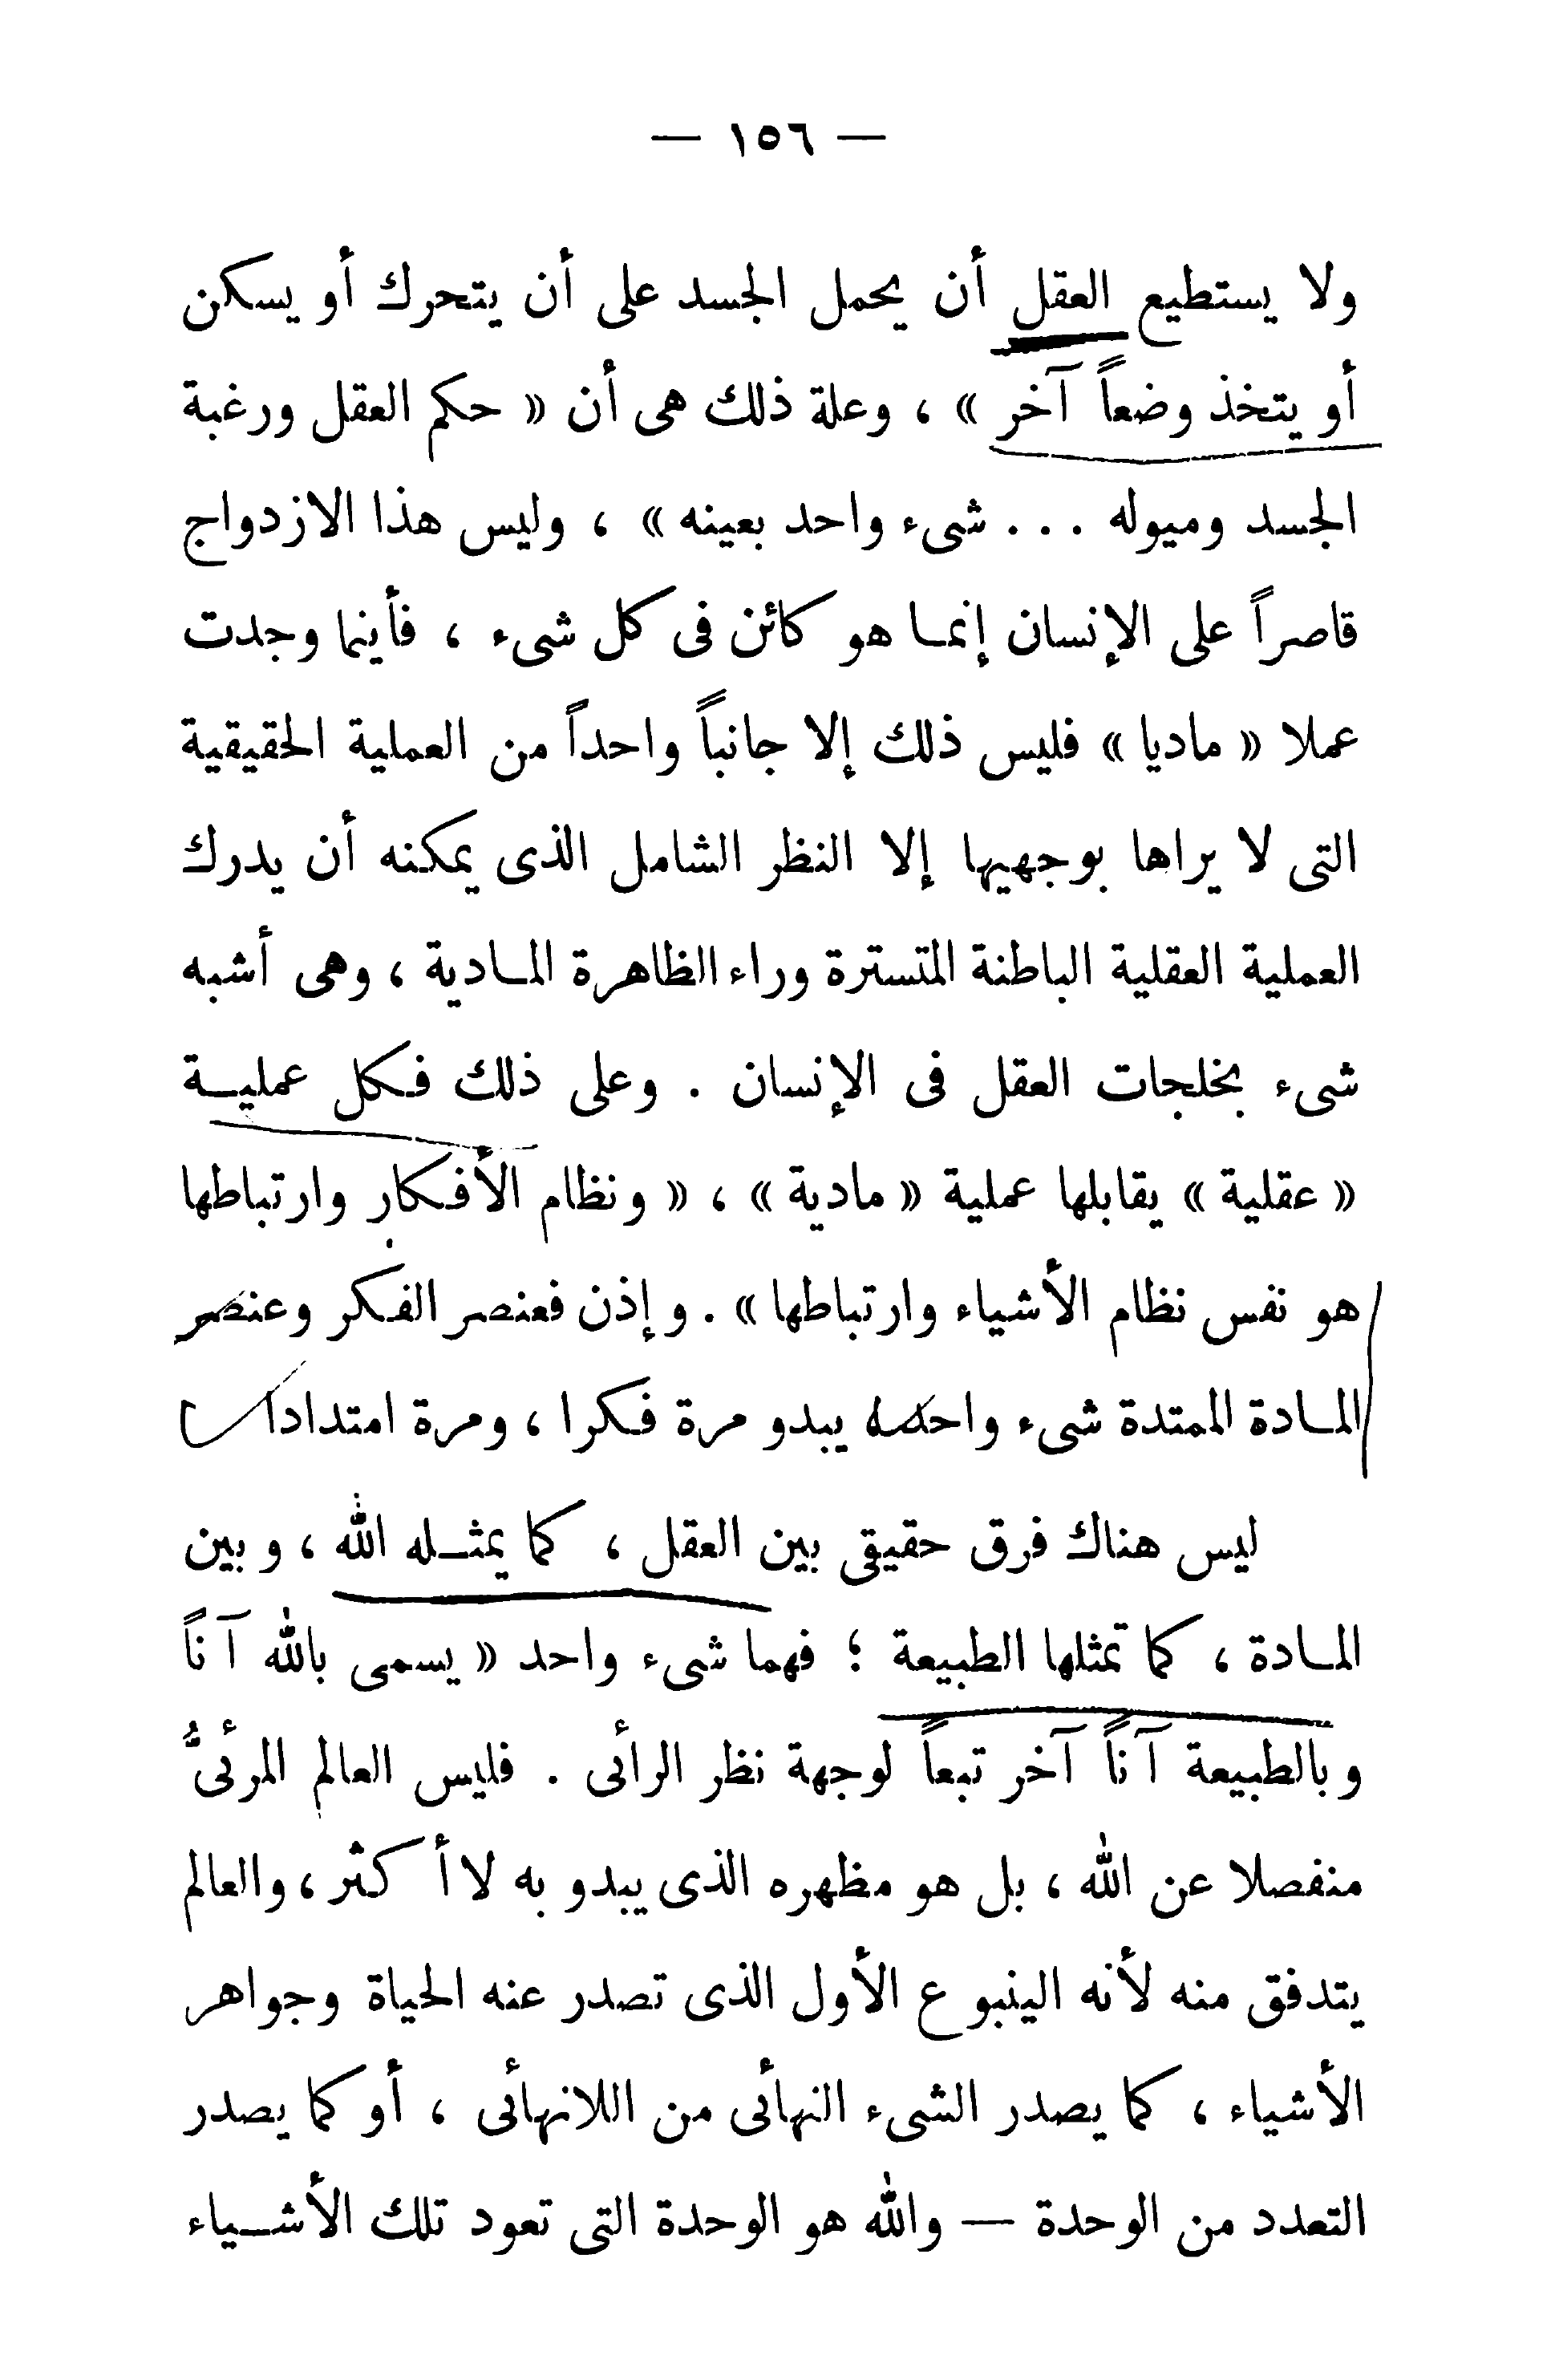 — ١٥٦ —
ولا يستطيع العقل أن يحمل الجسد على أن يتحرك أو يسكن
أو يتخذ وضعاً آخر » ، وعلة ذلك هى أن « حكم العقل ورغبة
الجسد وميوله . . . شىء واحد بعينه » ، وليس هذا الازدواج
قاصراً على الإنسان إنما هو كائن فى كل شىء ، فأينما وجدت
عملا « ماديا » فليس ذلك إلا جانباً واحداً من العملية الحقيقية
التى لا يراها بوجهيها إلا النظر الشامل الذى يمكنه أن يدرك
العملية العقلية الباطنة المتسترة وراء الظاهرة المادية ، وهى أشبه
شىء بخلجات العقل فى الإنسان . وعلى ذلك فكل عملية
« عقلية » يقابلها عملية « مادية » ، « ونظام الأفكار وارتباطها
هو نفس نظام الأشياء وارتباطها » . وإذن فعنصر الفكر وعنصر
المادة الممتدة شىء واحد يبدو مرة فكرا ، ومرة امتدادا
ليس هناك فرق حقيقى بين العقل ، كما يمثله الله ، وبين
المادة ، كما تمثلها الطبيعة ؛ فهما شىء واحد « يسمى بالله آناً
وبالطبيعة آناً آخر تبعاً لوجهة نظر الرأئى . فليس العالم المرئىُّ
منفصلا عن الله ، بل هو مظهره الذى يبدو به لا أكثر ، والعالم
يتدفق منه لأنه الينبوع الأول الذى تصدر عنه الحياة وجواهر
الأشياء ، كما يصدر الشىء النهائى من اللانهائى ، أو كما يصدر
التعدد من الوحدة — والله هو الوحدة التى تعود تلك الأشياء